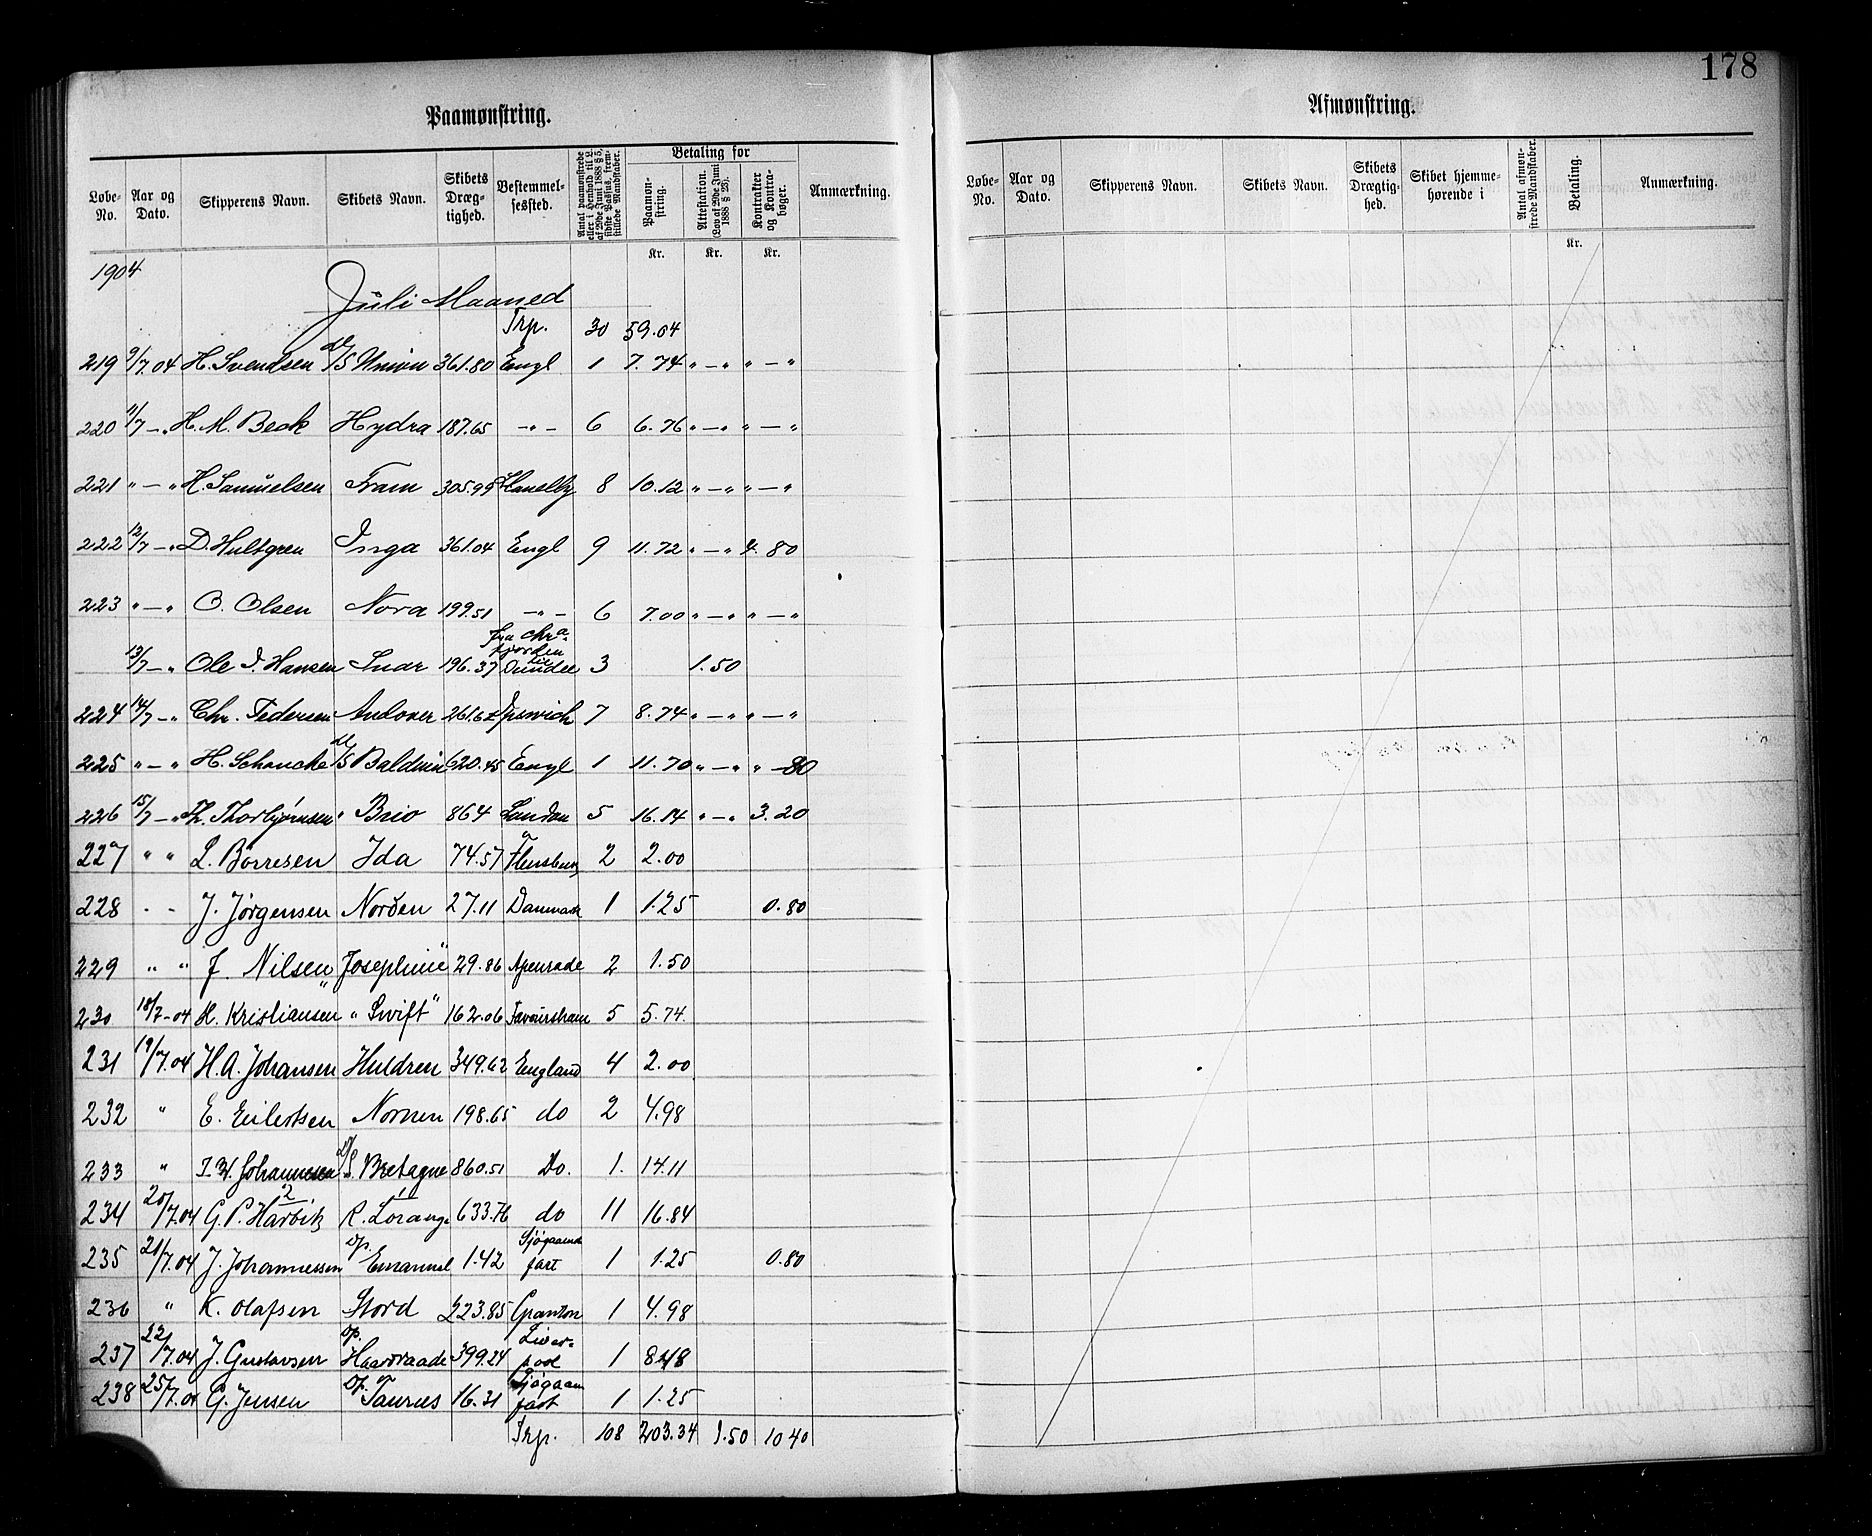 178
Paamønstring.
Løbe-No. | Aar og Dato. | Skipperens Navn. | Skibets Navn. | Skibets Dræg-tighed. | Bestemmel-sessted. | Antal paamønstrede eller i Henhold til L. af 29de Juni 1888 § 5, sidste Passus, frem-stillede Mandskaber. | Betaling for | Paamøn-string. | Attestation. (Lov af 29de Juni 1888 § 23). | Kontrakter og Kontra-bøger. | Anmærkning.
Kr. | Kr. | Kr.
1904
Juli Maaned
Trp. 30 59.04
219 9/7.04 H. Svendsen d/S Union 361.80 Engl 1 7.74 " — " " — "
220 11/7 — " H. M. Beck Hydra 187.65 — " — 6 6.76 " — " " — "
221 " — " H. Samuelsen Fram 305.99 8 10.12 " — " " — "
222 12/7 — " D. Hultgren Inga 361.04 Engl 9 11.72 " — " 4.80
223 " — " O. Olsen Nora 199.51 — " — 6 7.00 " — " " — "
13/7 — " Ole I. Hansen Snar 196.37 fra Chra fjorden til Dundee 3 1.50
224 14/7 — " Chr. Pedersen Andover 261.62 Ipswich 7 8.74 " — " " — "
225 " — " H. Schancke d/S Balduin 620.45 Engl 1 11.70 " — " " — 80
226 15/7 — " Th. Thorbjørnsen Brio 864 London 5 16.14 " — " 3.20
227 " " L. Børresen Ida 74.57 Flensburg 2 2.00
228 - - J. Jørgensen Norden 27.11 Danmark 1 1.25 0.80
229 " " J. Nilsen "Josephine" 29.86 Apenrade 2 1.50
230 18/7-04 H. Kristiansen "Swift" 162.06 Faversham 5 5.74
231 19/7.04 H.A. Johansen Huldren 349.62 England 4 2.00
232 " E. Eilertsen Nornen 198.65 do 2 4.98
233 " I. W. Johannesen D/S. Bretagne 860.51 Do. 1. 14.11
234 20/7.04 G. P. Harbitz R. Lorange 633.76 do 11 16.84
235 21/7.04 J. Johannessen Dp. Emanuel 1.42 Sjøgaaende fart 1 1.25 0.80
236 " K. Olafsen Stord 223.85 Granton 1 4.98
237 22/7.04 J. Gustavsen Dp. Haardraade 399.24 Liver-pool 1 8.48
238 25/7.04 G. Jensen Dp. Taurus 16.31 Sjøgaaen fart 1 1.25
Trp. 108 203.34 1.50 10 40
Afmønstring.
Løbe-No. | Aar og Dato. | Skipperens Navn. | Skibets Navn. | Skibets Drægtig-hed. | Skibet hjemme-hørende i | Antal afmøn-strede Mandskaber. | Betaling. | Anmærkning.
Kr.